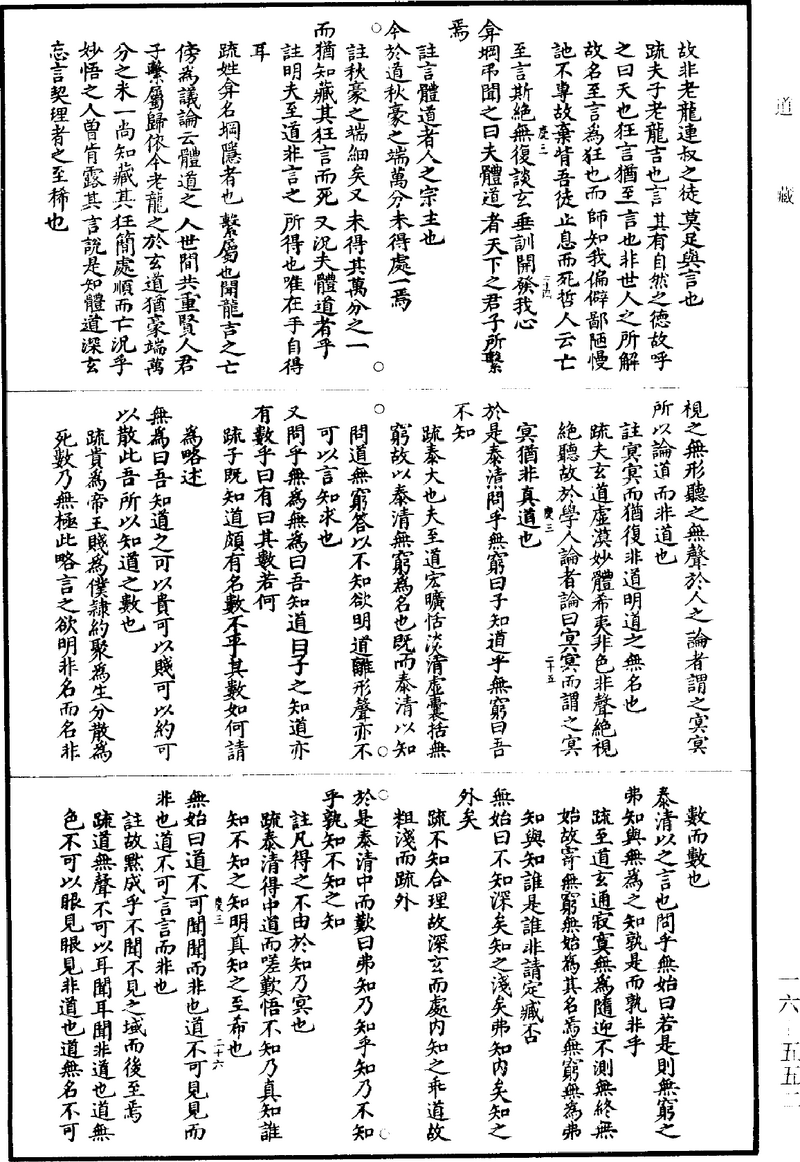 道藏
故非老龍連叔之徒莫足與言也
疏夫子老龍吉也言其有自然之德故呼
之曰天也狂言猶至言也非世人之所解
故名至言為狂也而師知我偏僻鄙陋慢
訑不專故棄背吾徒止息而死哲人云亡
至言斯絕無復談玄垂訓開發我心
弇堈弔聞之曰夫體道者天下之君子所繫
焉
註言體道者人之宗主也
今於道秋豪之端萬分未得處一焉
註秋豪之端細矣又未得其萬分之一
而猶知藏其狂言而死又況夫體道者乎
註明夫至道非言之所得也唯在乎自得
耳
疏姓弇名堈隱者也繫屬也聞龍言之亡
傍為議論云體道之人世間共重賢人君
子繫屬歸依今老龍之於玄道猶豪端萬
分之未一尚知藏其狂簡處順而亡況乎
妙悟之人曾肯露其言說是知體道深玄
忘言契理者之至稀也
視之無形聽之無聲於人之論者謂之冥冥
所以論道而非道也
註冥冥而猶復非道明道之無名也
疏夫玄道虛漠妙體希夷非色非聲絕視
絕聽故於學人論者論曰冥冥而謂之冥
冥猶非真道也
於是泰清問乎無窮曰子知道乎無窮曰吾
不知
疏泰大也夫至道宏曠恬淡清虛囊括無
窮故以泰清無窮為名也既而泰清以知
問道無窮答以不知欲明道離形聲亦不
可以言知求也
又問乎無為無為曰吾知道曰子之知道亦
有數乎曰有曰其數若何
疏子既知道頗有名數不乎其數如何請
為略述
無為曰吾知道之可以貴可以賤可以約可
以散此吾所以知道之數也
疏貴為帝王賤為僕隸約聚為生分散為
死數乃無極此略言之欲明非名而名非
數而數也
泰清以之言也問乎無始曰若是則無窮之
弗知與無為之知孰是而孰非乎
疏至道玄通寂寞無為隨迎不測無終無
始故寄無窮無始為其名焉無窮無為弗
知與知誰是誰非請定臧否
無始曰不知深矣知之淺矣弗知內矣知之
外矣
疏不知合理故深玄而處內知之乖道故
粗淺而疏外
於是泰清中而歎曰弗知乃知乎知乃不知
乎孰知不知之知
註凡得之不由於知乃冥也
疏泰清得中道而嗟歎悟不知乃真知誰
知不知之知明真知之至希也
無始曰道不可聞聞而非也道不可見見而
非也道不可言言而非也
註故默成乎不聞不見之域而後至焉
疏道無聲不可以耳聞耳聞非道也道無
色不可以眼見眼見非道也道無名不可
慶三
二十四
慶三
二十五
慶三
二十六
一六·五五二